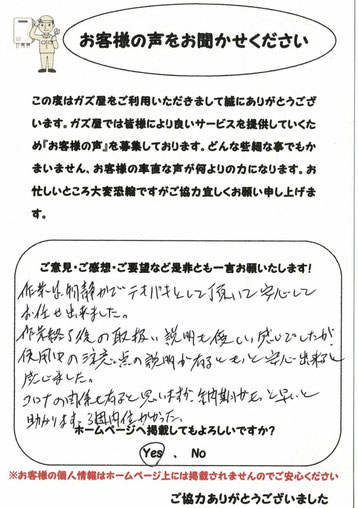 お客様の声をお聞かせください
この度はガズ屋をご利用いただきまして誠にありがとうござ
います。ガズ屋では皆様により良いサービスを提供していくた
め『お客様の声』を募集しております。どんな些細な事でもか
まいません、お客様の率直な声が何よりの力になります。お
忙しいところ大変恐縮ですがご協力宜しくお願い申し上げま
す。
ご意見・ご感想・ご要望など是非とも一言お願いたします!
作業は物静かでテキパキとして頂いて安心して
お任せ出来ました。
作業終了後の取扱い説明も良い感じでしたが
使用中の注意点の説明が有るともっと安心出来ると
感じました。
コロナの関係も有ると思いますが、納期がもっと早いと
助かります。3週間位かかった。
ホームページへ掲載してもよろしいですか?
Yes 、 No
※お客様の個人情報はホームページ上には掲載されませんのでご安心ください
ご協力ありがとうございました